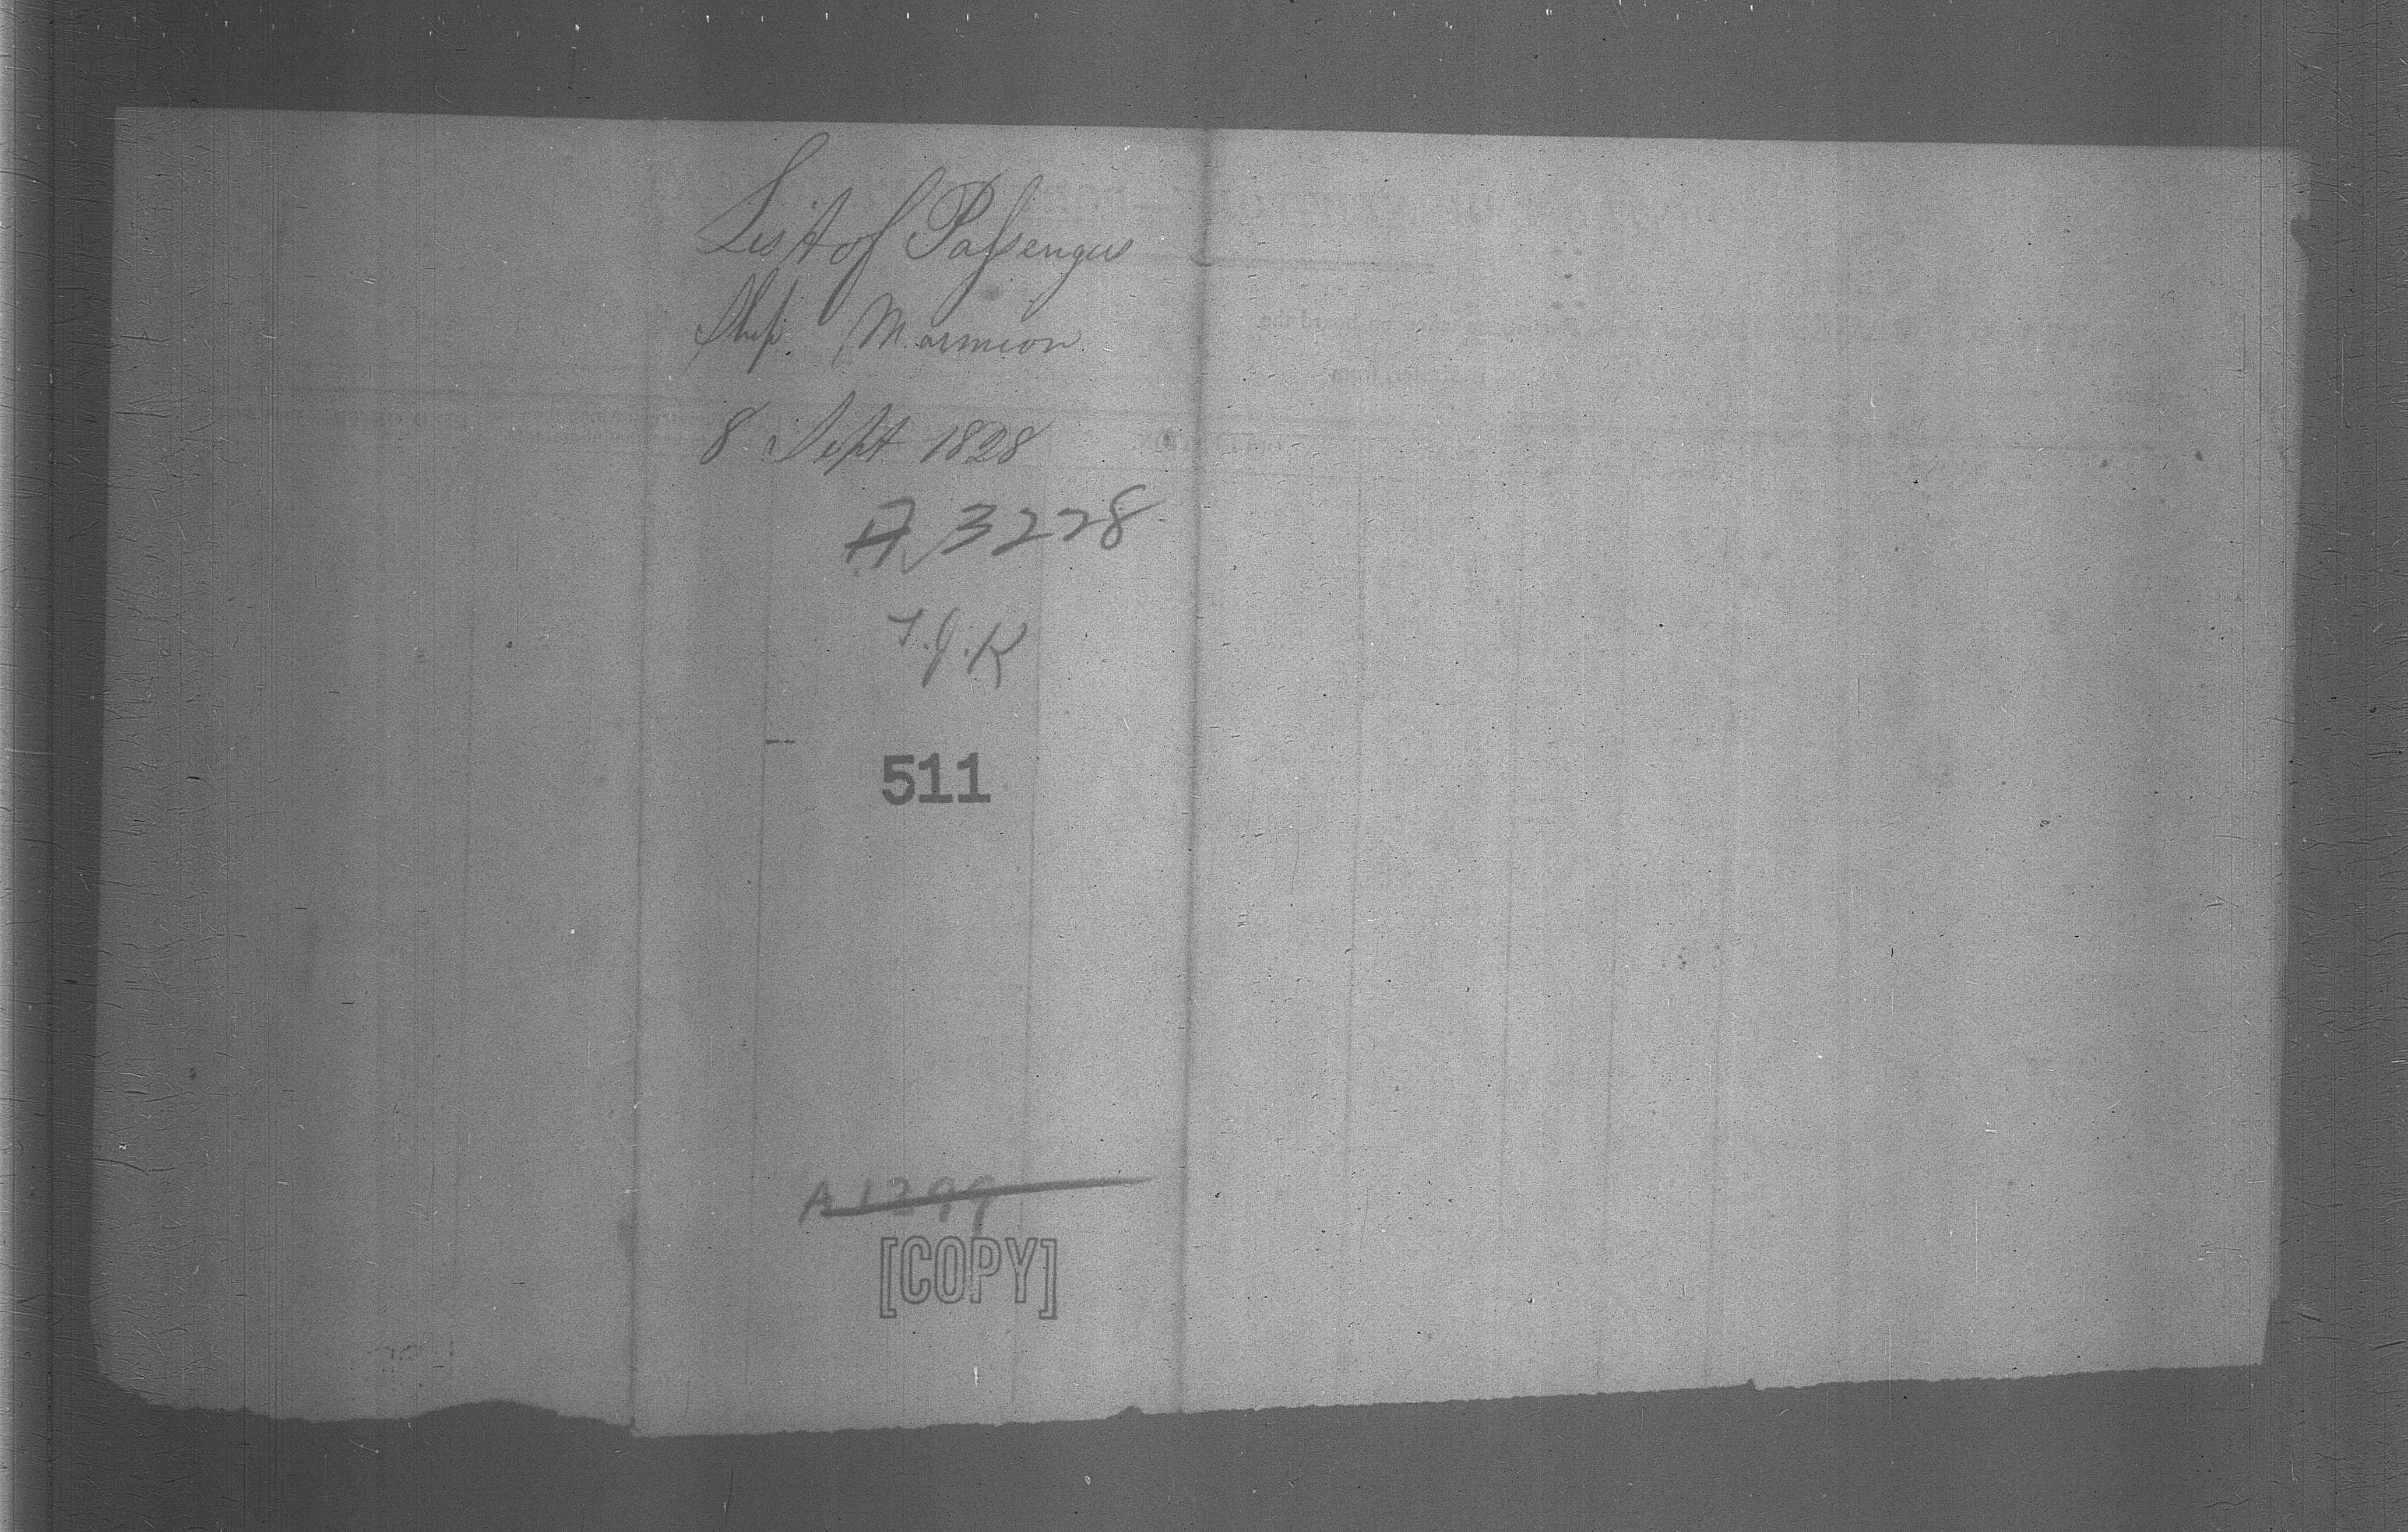 List of Passengers
Ship Marmion
8 Sept 1828
A 3228
T.J.K
511
A 1299
[COPY]